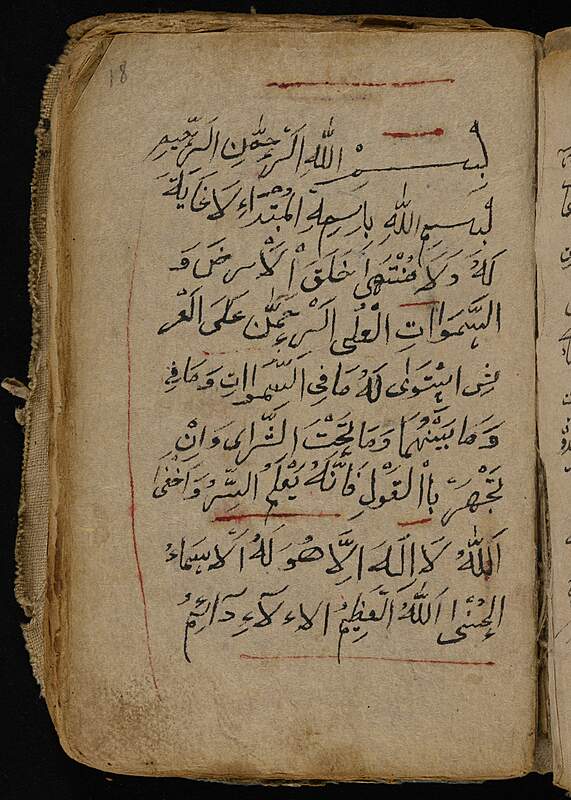 18
بِسْمِ اللّٰهِ الرَّحْمٰنِ الرَّحِيمِ
بِسْمِ اللّٰهِ بِاسْمِهِ الْمُبْتَدَاءِ لَا غَايَةَ
لَهُ وَلَا مُنْتَهَى خَلَقَ الْاَرْضَ وَ
السَّمَوَاتِ الْعُلَى الرَّحْمٰنُ عَلَى الْعَرْ
شِ اسْتَوَى لَهُ مَا فِي السَّمَوَاتِ وَمَا فِي
وَمَا بَيْنَهُمَا وَمَا تَحْتَ الثَّرَاى وَاِنْ
تَجْهَرْ بِاالْقَوْلِ فَاِنَّهُ يَعْلَمُ السِّرَّ وَاَخْفَى
اَللّٰهُ لَا اِلَهَ اِلَّا هُوَ لَهُ الْاَسْمَاءُ
الْحُسْنَى اَللّٰهُ الْعَظِيمُ الاءلَاءِ دَائِمُ